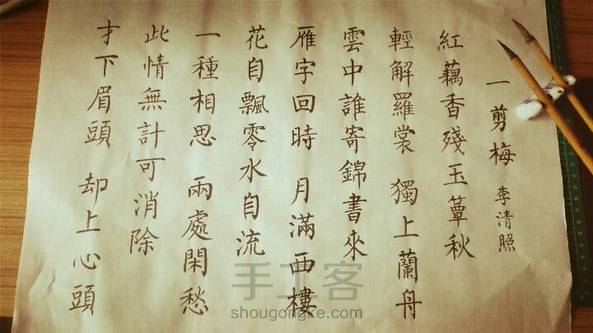 一剪梅 李清照
紅藕香殘玉簟秋
輕解羅裳 獨上蘭舟
雲中誰寄錦書來
雁字回時 月滿西樓
花自飄零水自流
一種相思 兩處閑愁
此情無計可消除
才下眉頭 却上心頭
手工客
shougongke.com